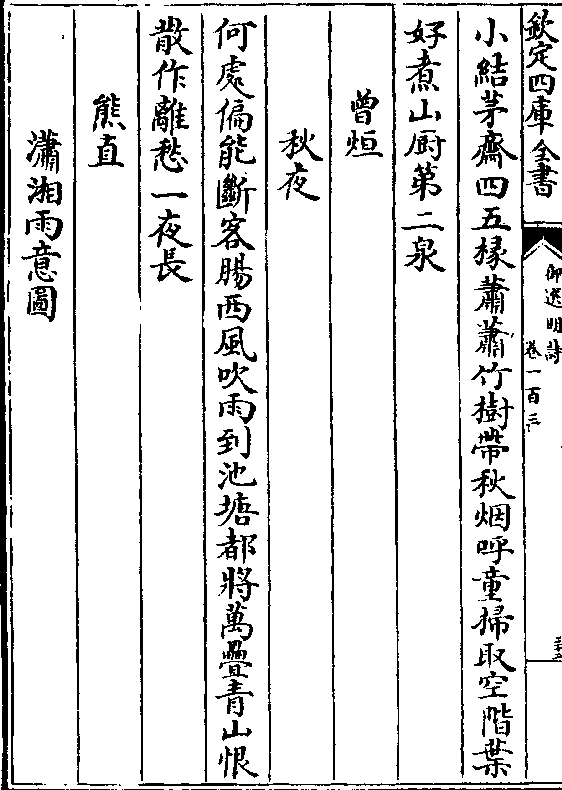 欽定四庫全書
御選明詩
卷一百三
小結茅齋四五椽蕭蕭竹樹帶秋烟呼童掃取空階葉
好煮山厨第二泉
曾烜
秋夜
何處偏能斷客腸西風吹雨到池塘都將萬疊青山恨
散作離愁一夜長
熊直
瀟湘雨意圖